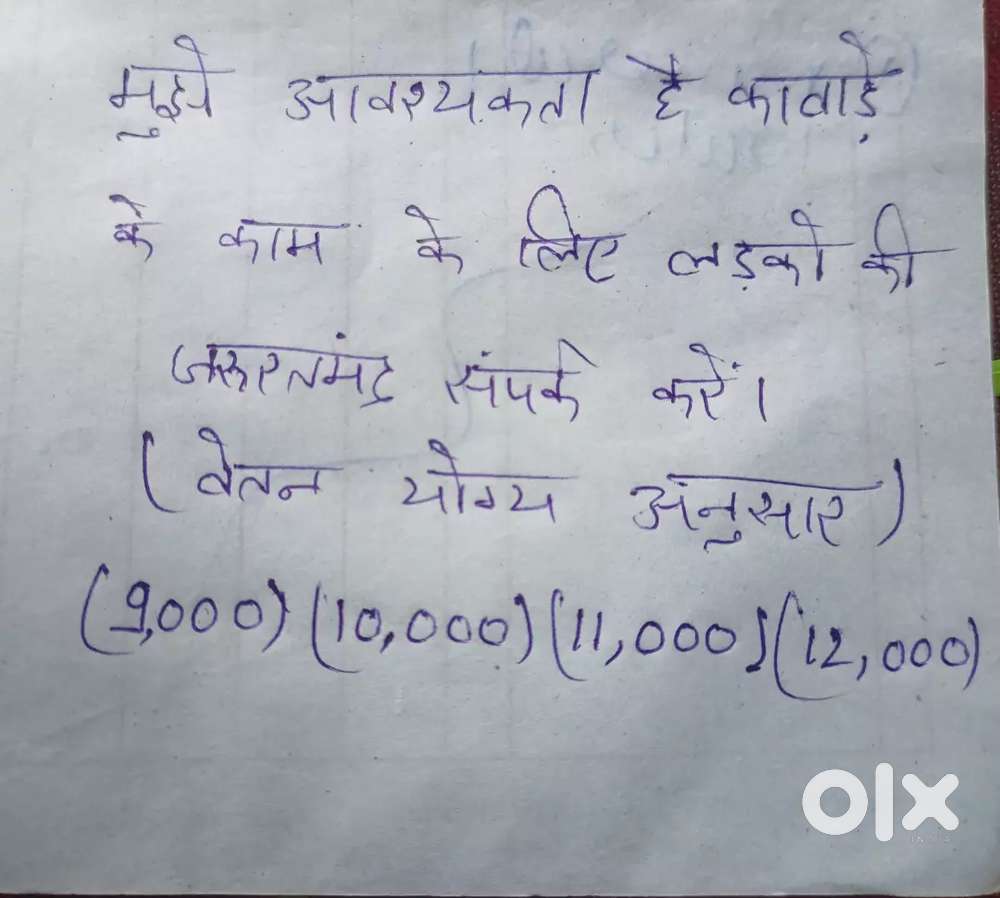 मुझे आवश्यकता है कावाड़े
के काम के लिए लड़को की
जरूरतमंद संपर्क करें।
(वेतन योग्य अनुसार)
(9,000) (10,000) (11,000) (12,000)
OLX
INDIA